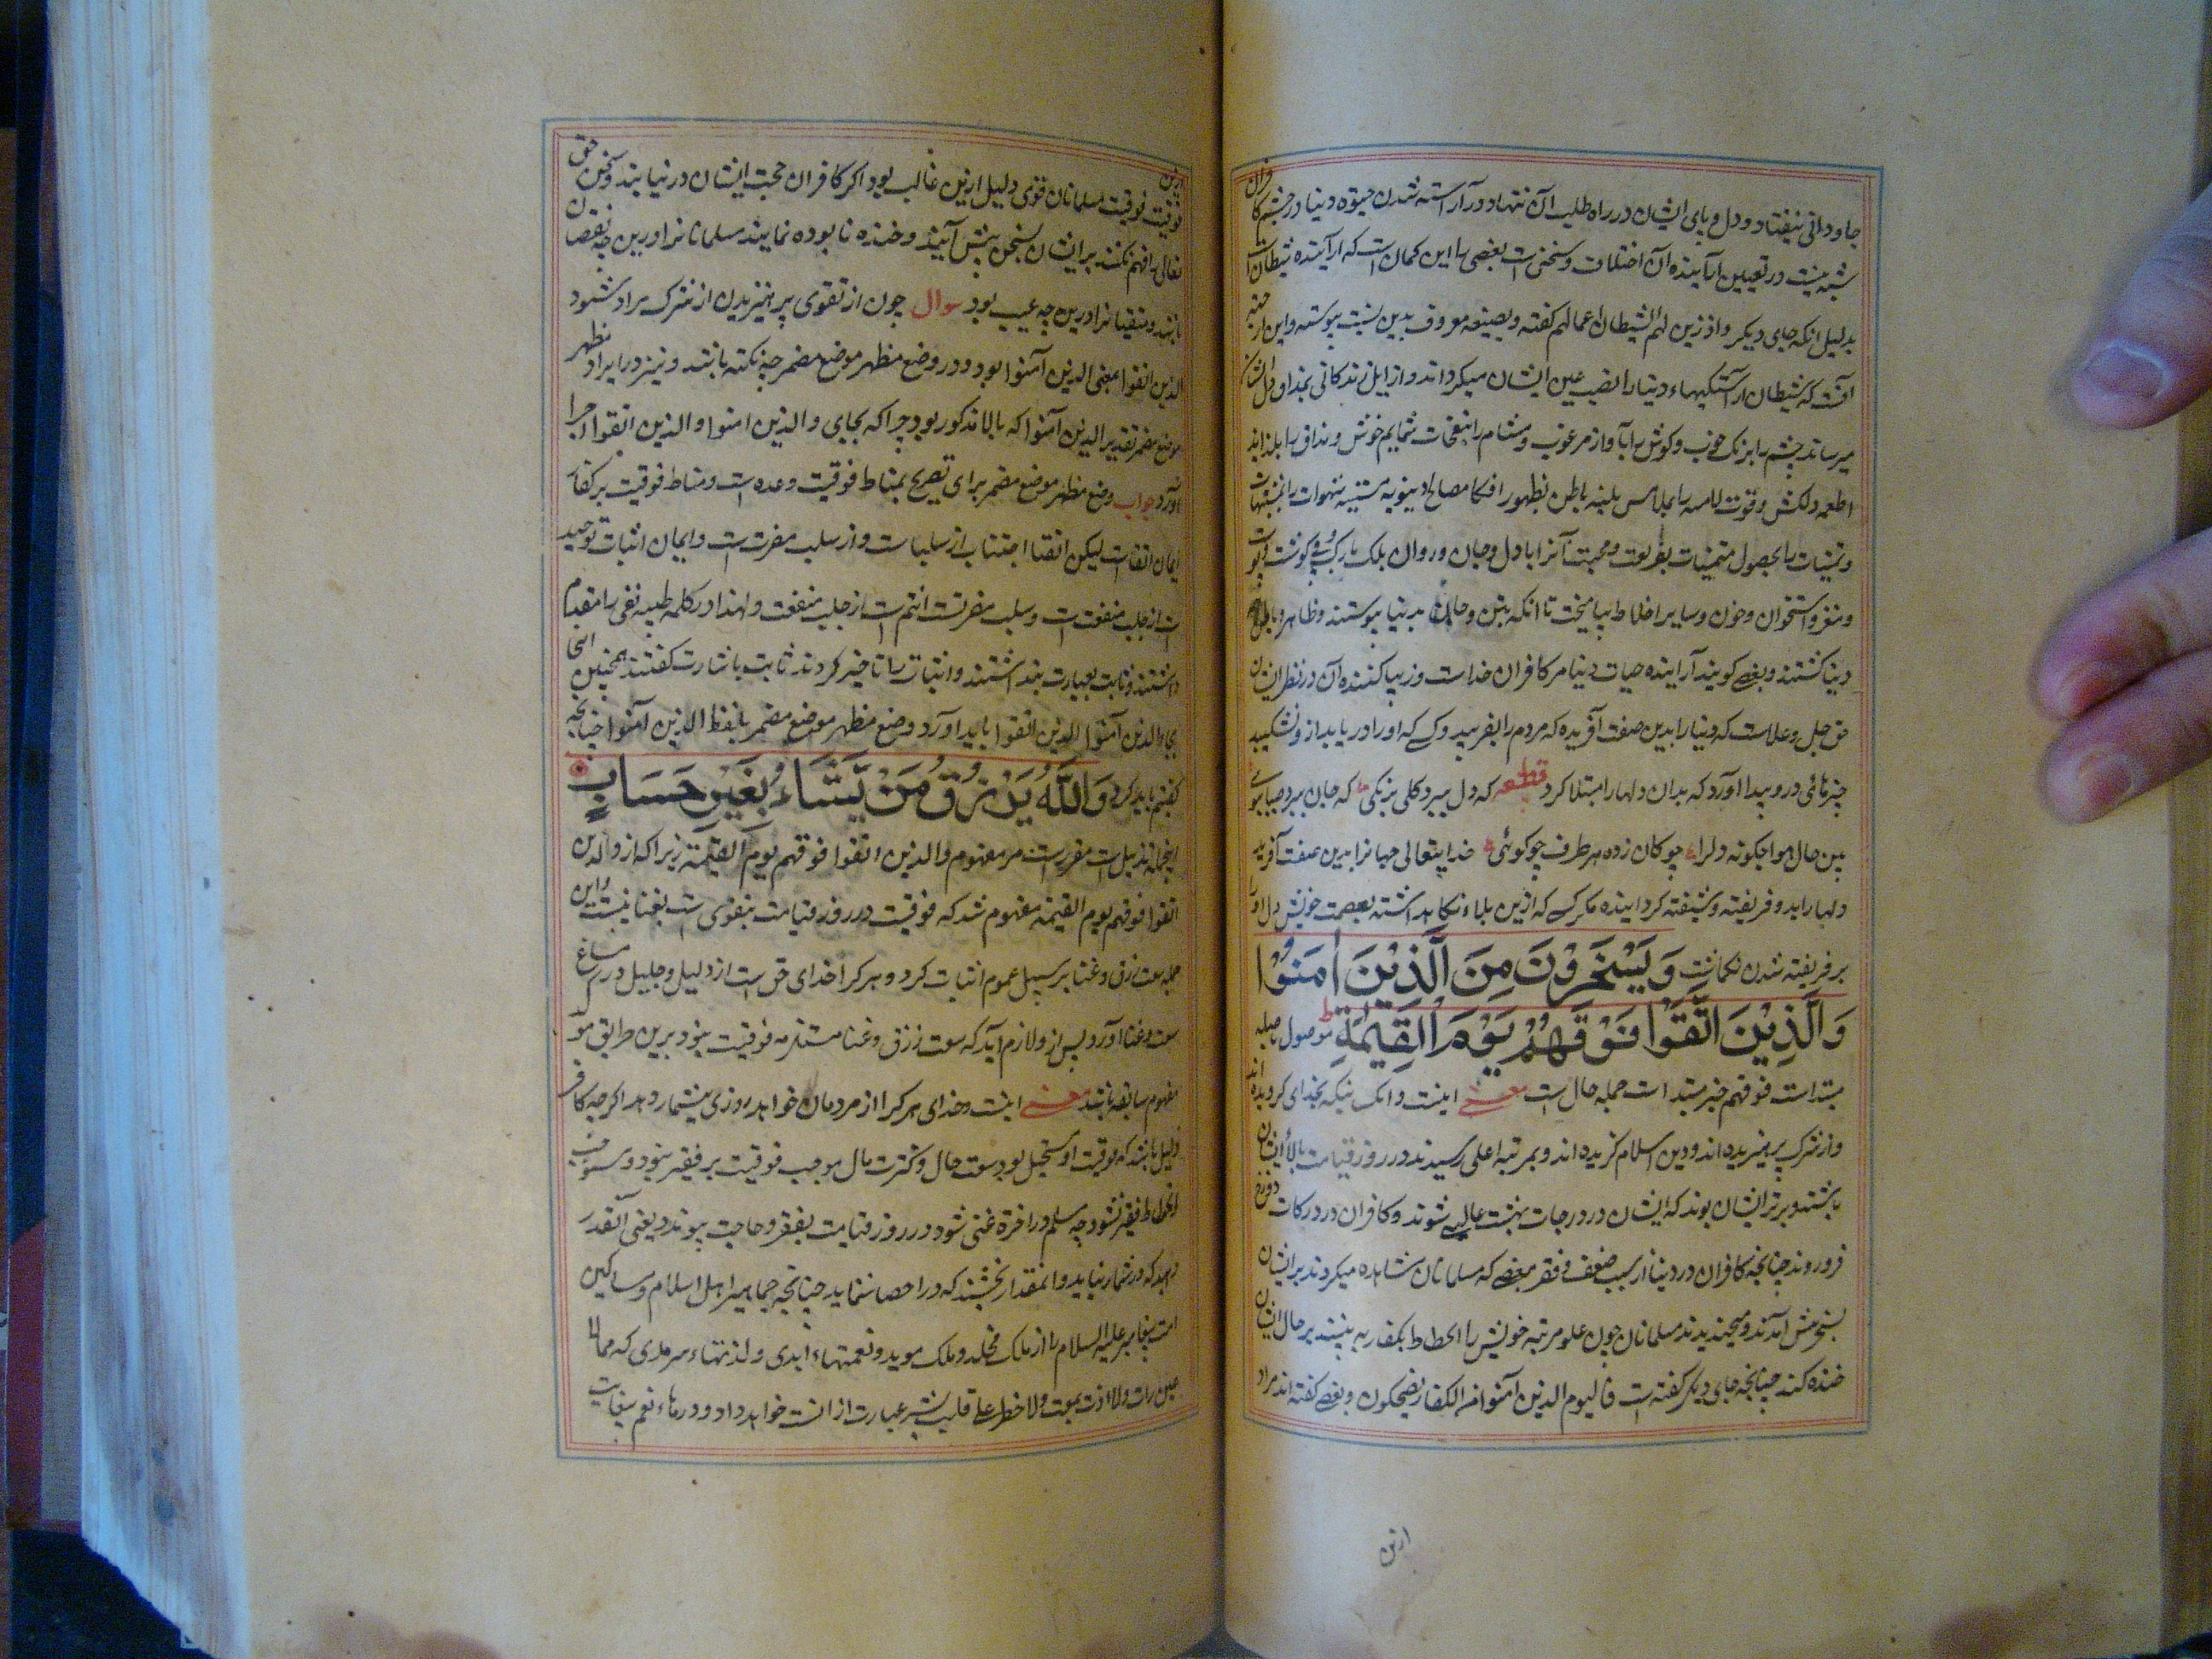 جاودانی نیفتاد و دل و پای ایشان در راه طلب آن ننهاد و در آراسته شدن حیوة دنیا در چشم کافران
شبه نیست در تعیین آراینده آن اختلاف و سخن است بعضی را این کمان است که آراینده شیطان است
بدلیل انکه جای دیکر واذ زین لهم الشیطان اعمالهم کفته و بصیغه معروف بدین نسبت پیوسته و این از
انست که شیطان آراستکیهاء دنیا را نصب عین ایشان میکرداند و از این زندکانی
میرساند چشم را برنک خوب و کوش را بآواز مرغوب و مشام را بنفحات شمایم خوش و مذاق را بلذاید
اطعمه دلکش و قوت لامسه را بملامس
و تمنیات را بحصول متمنیات بفریفت و محبت آنرا با دل و جان و روان بلک با رک و پی و کوشت و پوست
و مغز و استخوان و خون و سایر اخلاط بیامیخت تا انکه بتن و جان بدنیا پیوستند و ظاهر و باطن
دنیا کشتند و بعضے کویند آراینده حیات دنیا مر کافران خداست و زیبا کننده آن در نظر ایشان
حق جل و علاست که دنیا را بدین صفت آفریده که مردم را بفریبد و کسے که او را دریابد از و نشکیبد
چیزهائی درو پیدا آورد که بدان دلها را مبتلا کرد قطعه که دل ببرد کلی برنکی که جان ببرد صبا ببوئے
ببین حال هوا چکونه دلرا چوکان زده هر طرف چو کوئی خدایتعالی جهانرا بدین صفت آفرید
دلها را بدو فریفته و شیفته کردانیده مکر کسے که ازین بلاء نکاه داشته بعصمت خویش دل او
بر فریفته شدن نکماشت وَيَسْخَرُوْنَ مِنَ الَّذِيْنَ اٰمَنُوْا
وَالَّذِيْنَ اتَّقَوْا فَوْقَهُمْ يَوْمَ الْقِيٰمَةِ ط موصول با صله
مبتداست فوقهم خبر مبتدا است جمله حال است معنے اینست و انک نیکه بخدای کرویده اند
و از شرک پرهیزیده اند و دین اسلام کزیده اند و بمرتبه اعلی رسیدند در روز قیامت بالاء ایشان
باشند و برتر ایشان بوند که ایشان در درجات بهشت عالیے شوند و کافران در درکات دوزخ
فرو روند چنانچه کافران در دنیا از سبب ضعف و فقر بعضے که مسلمانان مشاهده میکردند بر ایشان
بسخن پیش آمدند و میخندیدند مسلمانان چون علو مرتبه خویش را انحطاط بکفار به بینند بر حال ایشان
خنده کنند چنانچه جای دیکر کفته است فالیوم الذین آمنوا من الکفار یضحکون و بعضے کفته اند مراد
ازین
ازین
فوقیت فوقیت مسلمانان قوی دلیل ازین غالب بود اکر کافران حجت ایشان در نیابند و سخن حق
تعالی را فهم نکنند بر ایشان بسخن پیش آیند و خنده نابوده نمایند مسلمانانرا درین چه نقصان
باشد و متقیانرا درین چه عیب بود سوال چون از تقوی پرهیزیدن از شرک مراد شود
الذین اتقوا بمعنی الذین آمنوا بود و در وضع مظهر موضع مضمر چه نکته باشد و نیز در ایراد مظهر
موضع مضمر تقدیر الذین آمنوا که بالا مذکور بود چرا که بجای والذین امنوا والذین اتقوا چرا
آورد جواب وضع مظهر موضع مضمر برای تصریح بمناط فوقیت وعده است و مناط فوقیت بر کفار
ایمان اتقاست لیکن اتقا اجتناب از سلبیات و از سلب مضرت است و ایمان اثبات توحید
است از جلب منفعت است و سلب مضرت اتم است از جلب منفعت ولهذا در کلمه طیبه نفی را مقدم
داشتند و ثابت بعبارت بنداشتند و اثبات را تاخیر کردند ثابت باشارت کفتند همچنین اینجا
بجاء الذین آمنوا الذین اتقوا باید آورد و وضع مظهر موضع مضمر بلفظ الذین آمنوا چنانچه
کفتم باید کرد وَاللّٰهُ يَرْزُقُ مَنْ يَّشَاءُ بِغَيْرِ حِسَابٍ
اینجمله تذییل است مقررست مر مفهوم والذین اتقوا فوقهم یوم القیمة زیرا که از والذین
اتقوا فوقهم یوم القیمة مفهوم شد که فوقیت در روز قیامت بتقوی است بغنا نیست و این
جمله سعت رزق و غنا بر سبیل عموم اثبات کرد و هر کرا خدای حق است از ذلیل و جلیل در مساغ
سعت و غنا آورد پس از و لازم آید که سعت رزق و غنا مستلزم فوقیت نبود برین طریق مو
مفهوم سابقه باشد معنے اینست و خدای هر کرا از مردمان خواهد روزی بیشمار دهد اکرچه کافر
ذلیل باشد که فوقیت او مستحیل بود سعت حال و کثرت مال موجب فوقیت بر فقیر نبود و سبب
انحطاط فقیر نشود چه مسلم در آخرة غنی شود در روز قیامت بفقر و حاجت پیوندد یعنی آنقدر
دهد که در شمار نیاید و انمقدار بخشد که در احصا ننماید چنانچه جماهیر اهل اسلام و مساکین
امت پیغامبر علیه السلام را از ملک مخلد و ملک موید و نعمتهاء ابدی و لذتهاء سرمدی که مما لا
عین رات ولا اذن سمعت ولا خطر علے قلب بشر عبارت از انست خواهد داد و درهاء نعم بیغایت